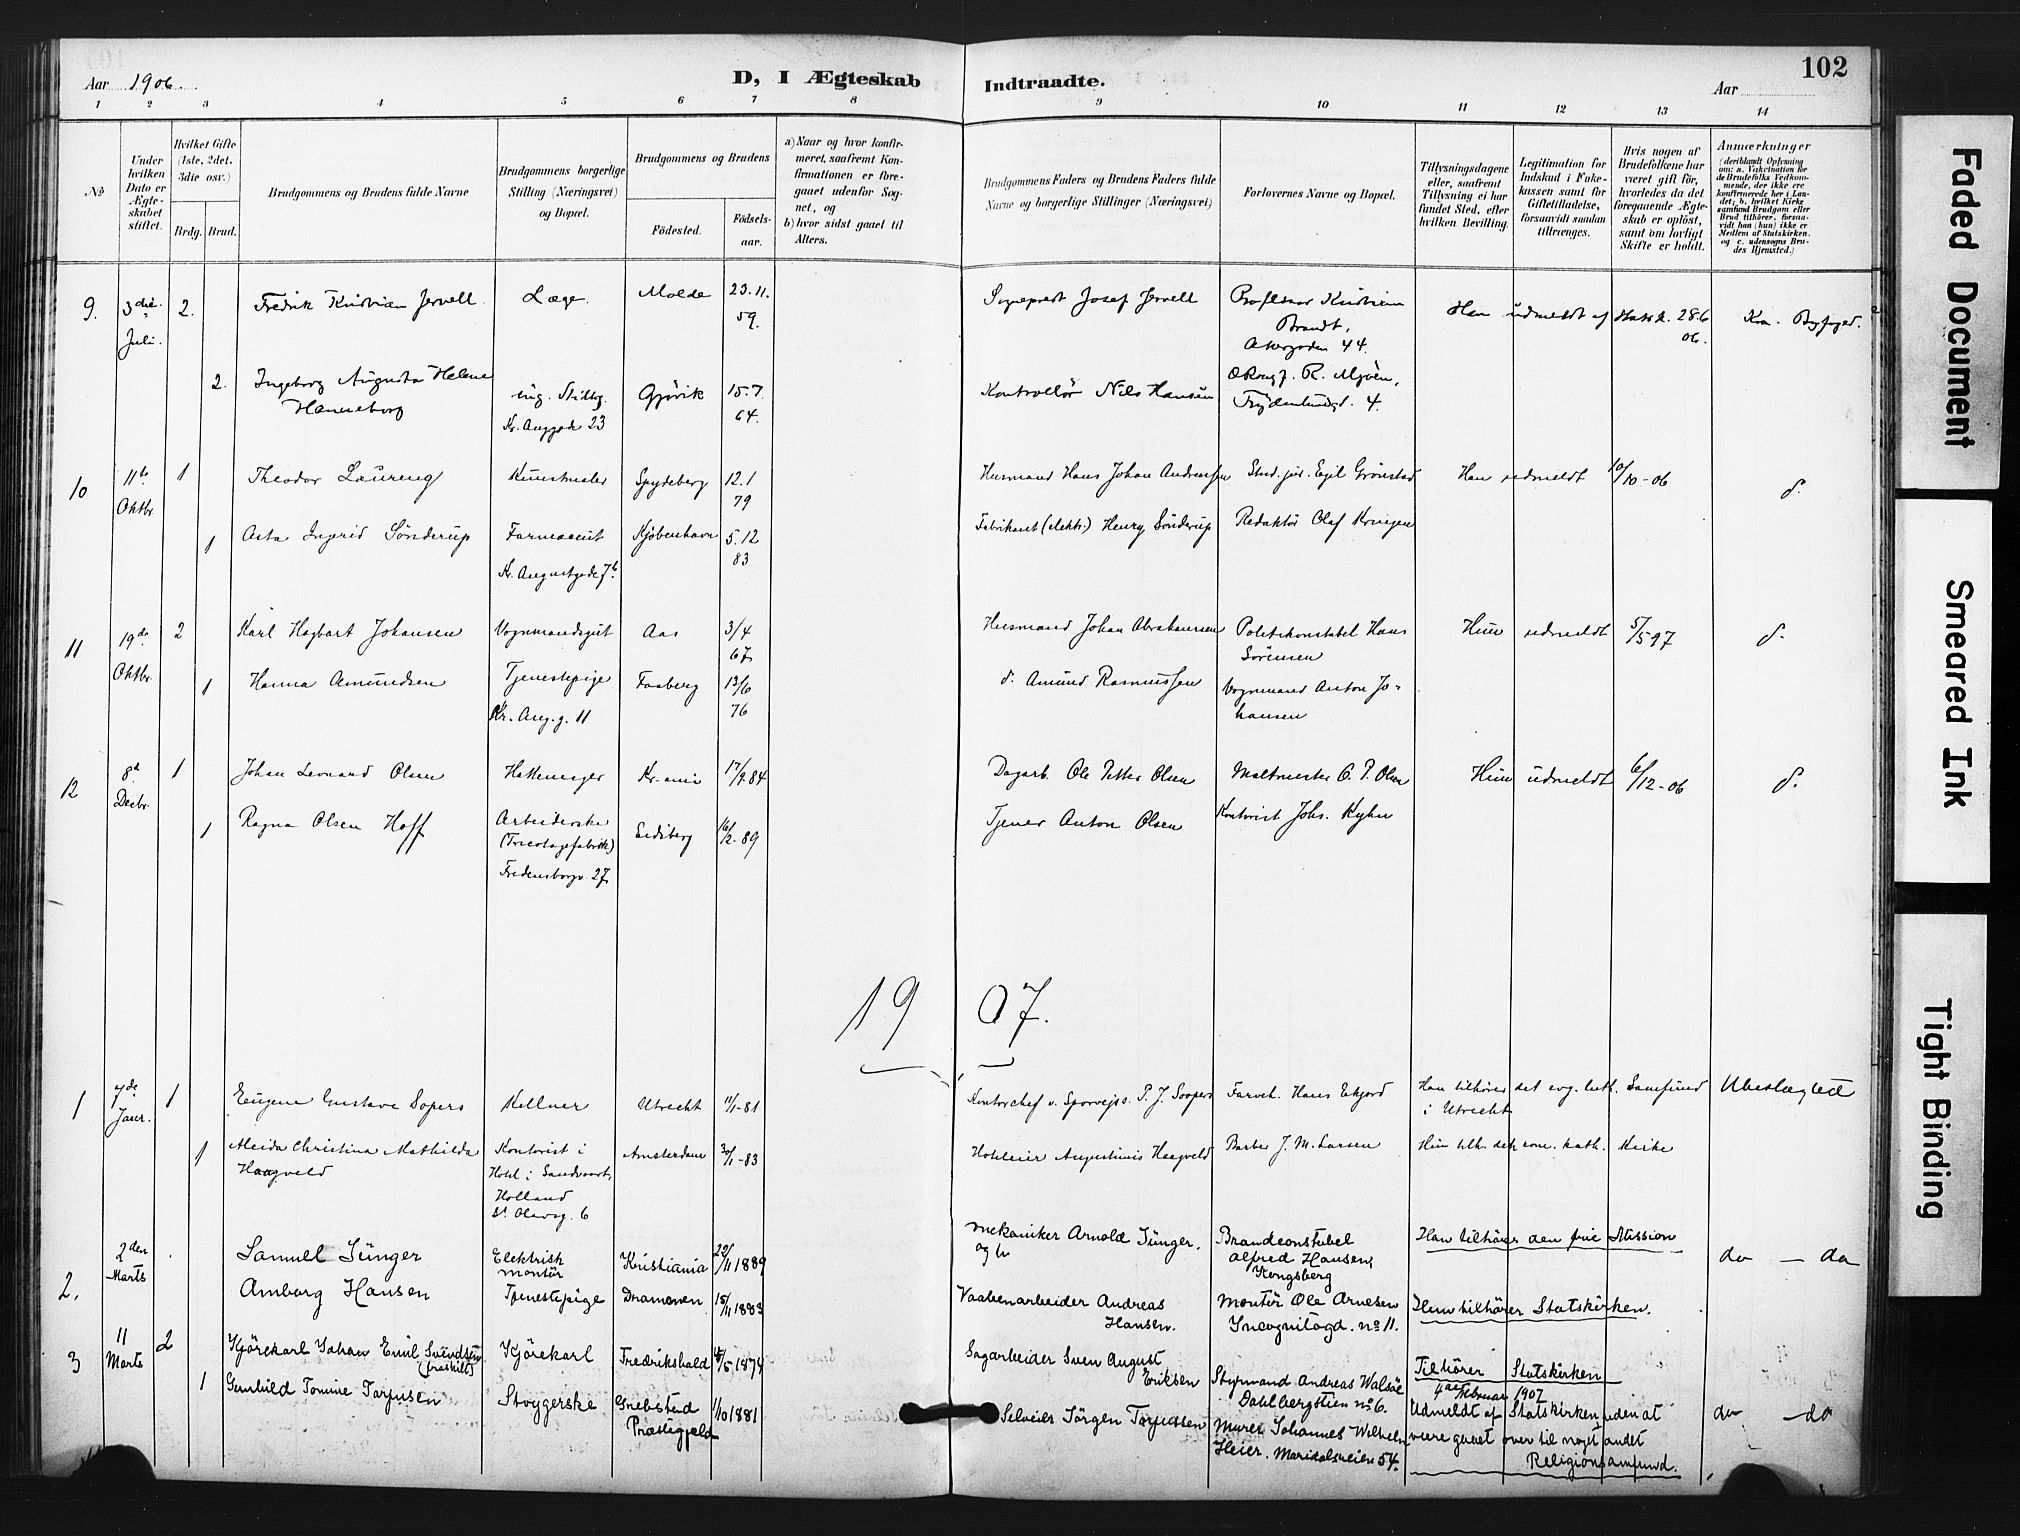 102
Aar 1906.
D, I Ægteskab
Indtraadte.
Aar
1 2 3 4 5 6 7 8 9 10 11 12 13 14
No
Under hvilken Dato er Ægteskabet stiftet.
Hvilket Gifte (1ste, 2det, 3die osv.)
Brdg. Brud.
Brudgommens og Brudens fulde Navne
Brudgommens borgerlige Stilling (Næringsvei) og Bopæl.
Brudgommens og Brudens
Fødested.
Fødselsaar.
a) Naar og hvor konfirmeret, saafremt Konfirmationen er foregaaet udenfor Sognet, og
b) hvor sidst gaaet til Alters.
Brudgommens Faders og Brudens Faders fulde Navne og borgerlige Stillinger (Næringsvei)
Forlovernes Navne og Bopæl.
Tillysningsdagene eller, saafremt Tillysning ei har fundet Sted, efter hvilken Bevilling.
Legitimation for Indskud i Enkekassen samt for Giftetilladelse, forsaavidt saadan tiltrænges.
Hvis nogen af Brudefolkene har været gift før, hvorledes da det foregaaende Ægteskab er opløst, samt om lovligt Skifte er holdt.
Anmærkninger
(deriblandt Oplysning om: a. Vakcination for de Brudefolks Vedkommende, der ikke ere konfirmerede her i Landet; b. hvilket Kirkesamfund Brudgom eller Brud tilhører, forsaavidt han (hun) ikke er Medlem af Statskirken, og c. udensogns Brudes Hjemsted.)
9. 3die Juli. 2. Fredrik Kristian Jervell Læge. Molde 23.11. 59. Sogneprest Josef Jervell Professor Kristian Brandt, Akersgaden 44. Han udmeldt af Statsk. 28.6 06. Kra. Byfoged.
2. Ingeborg Augusta Helene Hanneborg Kr. Auggade 23 Gjøvik 15.7 64. Kontrollør Nils Hansen R. Mjøen, 4.
10 11te Oktbr. 1 Theodor Laureng Kunstmaler Spydeberg 12.1 79 Husmand Hans Johan Andreassen Stud. jur. Egil Grönstad Han udmeldt 10/10-06 d.
1 Asta Ingrid Sönderup Farmaceut Kr. Augustgade 7b. Kjøbenhavn 5.12 83 Fabrikant (elektr.) Henry Sönderup Redaktör Olaf Kringen
11 19de Oktbr. 2 Karl Hagbart Johansen Vognmandsgut Aas 3/4 67 Husmand Johan Abrahamsen Politikonstabel Hans Sörensen Hun udmeldt 5/5 97 d.
1 Hanna Amundsen Tjenestepige Kr. Aug.g. 11 Faaberg 13/6 76 d. Amund Rasmussen Vognmand Anton Johansen
12 8d Decbr. 1 Johan Leonard Olsen Hattemager Kr.ania 17/9.84 Dagarb. Ole Petter Olsen Maltmester O. P. Olsen Hun udmeldt 6/12-06 d.
1 Ragna Olsen Hoff Arbeiderske (Tricotagefabrik) Fredensborgv. 27 Eidsberg 16/2-89 Tjener Anton Olsen Kontorist Johs. Kyhn
1907.
1 7de Janr. 1 Eugene Gustave Sopers Kellner Utrecht 11/1-81 Kontorchef v. Sporveiss. P. J. Soopers Farveh. Hans Ekjord Han tilhører det evg. luth. Samfund i Utrecht Ubeslægted
1 Aleida Christina Mathilda Haagveld Kontorist i Hotel i Sandvoort, Holland St. Olavsg. 6 Amsterdam 3/1-83 Hoteleier Augustinus Haagveld Barber J. M. Larsen Hun tilh. det rom. kath. Kirke
2. 2den Marts Samuel Jünger Elektrisk montör Kristiania 22/11 1889 Mekaniker Arnold Jünger. Brandconstabel Alfred Hansen, Kongsberg Han tilhører den frie Mission do — do
Amborg Hansen Tjenestepige Drammen 15/11 1883 Vaabenarbeider Andreas Hansen. Montör Ole Arnesen Incognitogd. no 11. Hun tilhører Statskirken.
3 11 Marts 2 Kjörekarl Johan Emil Svendsen (fraskilt) Kjörekarl Fredrikshald /5 1874 Sagarbeider Sven August Eriksen Styrmand Andreas Walsöe Dahlbergstien no 6. Tilhører Statskirken
1 Gunhild Tomine Tarjusen Strygerske Grebstad Præstegjeld 1/10 1881 Selveier Jörgen Tarjudsen Murer Johannes Wilhelm Heier. Maridalsveien 54. 4de Februar 1907 Udmeldt af Statskirken uden at være gaaet over til noget andet Religionssamfund. do — do
Faded Document
Smeared Ink
Tight Binding